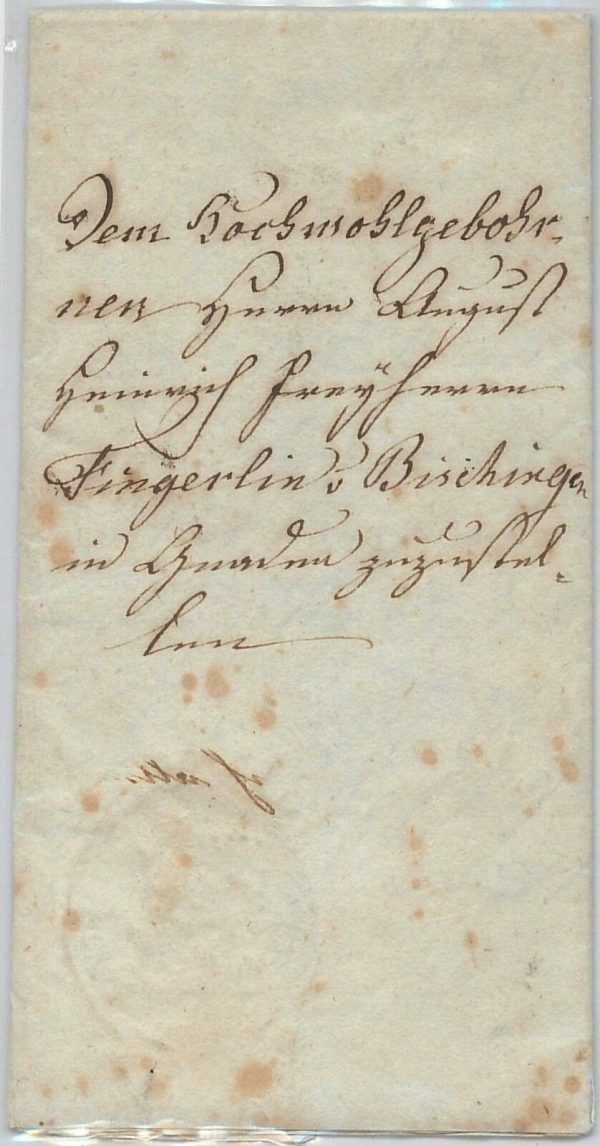 Dem Hochwohlgebohr-
nen Herrn August
Heinrich Freyherrn
Fingerlin v Bischingen
in Gnaden zuzustel-
len